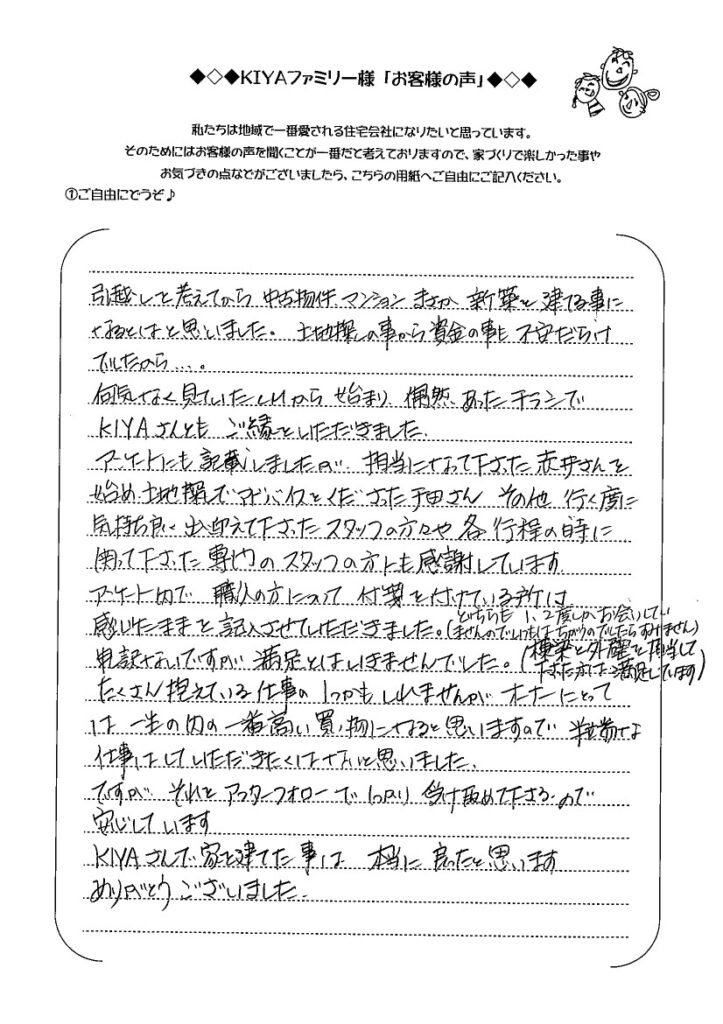 ◆◇◆KIYAファミリー様「お客様の声」◆◇◆
私たちは地域で一番愛される住宅会社になりたいと思っています。
そのためにはお客様の声を聞くことが一番だと考えておりますので、家づくりで楽しかった事や
お気づきの点などがございましたら、こちらの用紙へご自由にご記入ください。
①ご自由にどうぞ♪
引越しを考えてから 中古物件 マンション まさか 新築を建てる事に
なるとはと思いました。土地探しの事から資金の事も 不安だらけ
でしたから…。
何気なく見ていた から始まり 偶然 あった チラシで
KIYAさんとも ご縁をいただきました。
アンケートにも記載しましたが、担当になって下さった赤井さんを
始め 土地探しでアドバイスをくださった 田さん その他 行く度に
気持ち良く出迎えて下さったスタッフの方々や各行程の時に
関って下さった専門のスタッフの方にも感謝しています
アンケート内で 職人の方について 付箋を付けている所は
感じたままを記入させていただきました。(どちらも1、2度しかお会いして
ませんのでちがうのでしたらすみません)
申訳ないですが 満足とはいきませんでした。(棟梁と外壁を担当して
下さった方は満足しています)
たくさん抱えている仕事の1つかもしれませんが オーナーにとって
は 一生の内の一番高い買い物になると思いますので 半端な
仕事はしていただきたくはないと思いました。
ですが それをアフターフォローでしっかり 受け止めて下さるので
安心しています
KIYAさんで家を建てた事は 本当に良ったと思います
ありがとうございました。